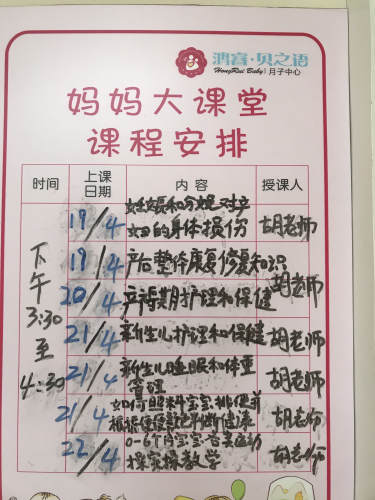 鸿睿·贝之语
HongRui Baby 月子中心
妈妈大课堂
课程安排
时间 上课日期 内容 授课人
下午3:30至4:30
19/4 妊娠和分娩对产妇的身体损伤 胡老师
19/4 产后整体康复修复知识 胡老师
20/4 产褥期护理和保健
21/4 新生儿护理和保健 胡老师
21/4 新生儿睡眠和体重管理 胡老师
21/4 如何照料宝宝排便并根据便便颜色判断健康 胡老师
22/4 0-6个月宝宝 操教学 胡老师